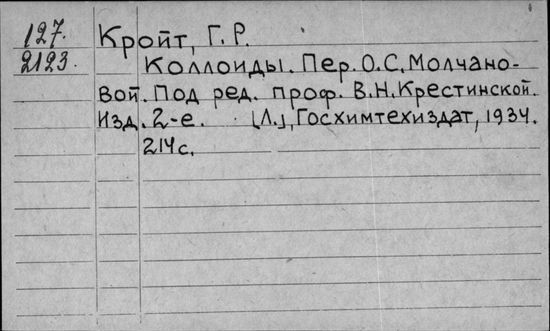 127. Кройт, Г. Р.
2123. Коллоиды. Пер. О.С. Молчано-
вой. Под ред. проф. В.Н. Крестинской.
Изд. 2-е. [Л.], Госхимтехиздат, 1934.
214 с.